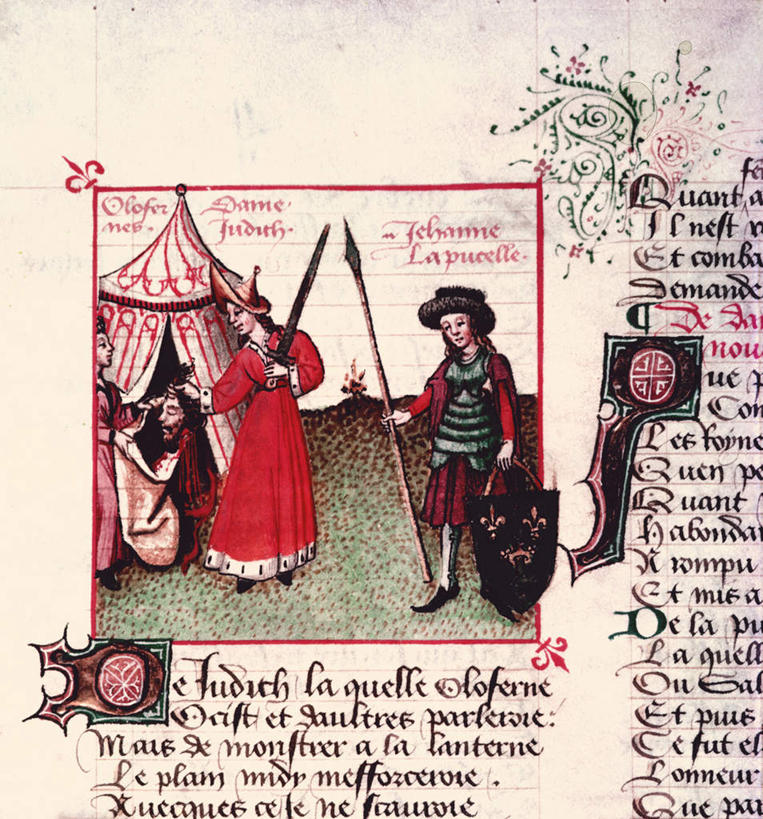 Olofer
nes.
Dame
Judith.
Jehanne
La pucelle.
De Judith la quelle Oloferne
Ocist et daultres parleroie:
Mais de monstrer a la lanterne
Le plain midy mefforceroie.
Auecques ce Je ne scauroie
Quant a
Il nest
Et comba
Demande
¶ De da
nou
ue p
Con
Les
Quen pe
Quant
habonda
rompu
Et mis a
De la pu
La quell
Ou Sal
Et puis
Ce fut el
Lonneur
Que par